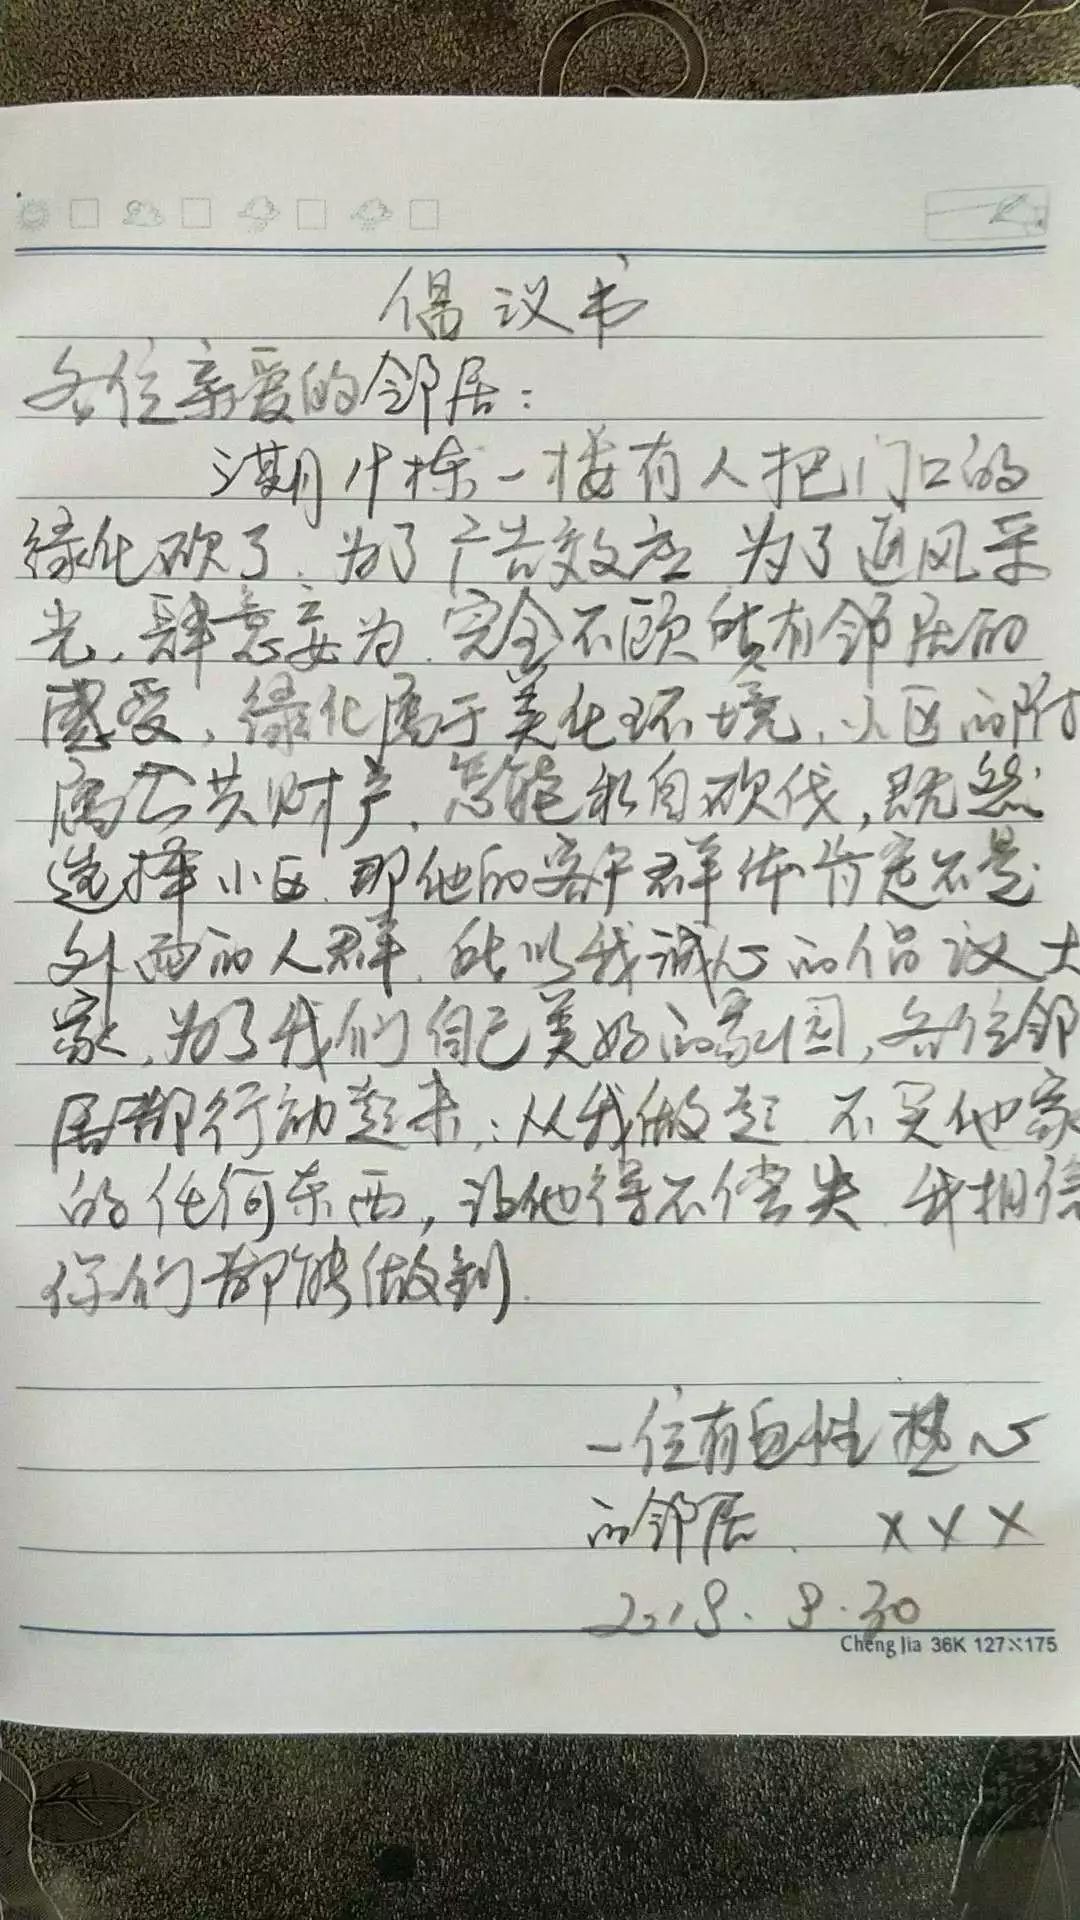 倡议书
各位亲爱的邻居：
期 栋一楼有人把门口的
绿化砍了.为了广告效应 为了通风采
光,肆意妄为.完全不顾所有邻居的
感受,绿化属于美化环境,小区的附
属公共财产,怎能私自砍伐,既然
选择小区.那他的客户群体肯定不是
外面的人群.所以我诚心的倡议大
家,为了我们自己美好的家园,各位邻
居都行动起来:从我做起 不买他家
的任何东西,让他得不偿失.我相信
你们都能做到.
一位有 性热心
的邻居. XXX
9.30
Cheng Jia 36K 127×175